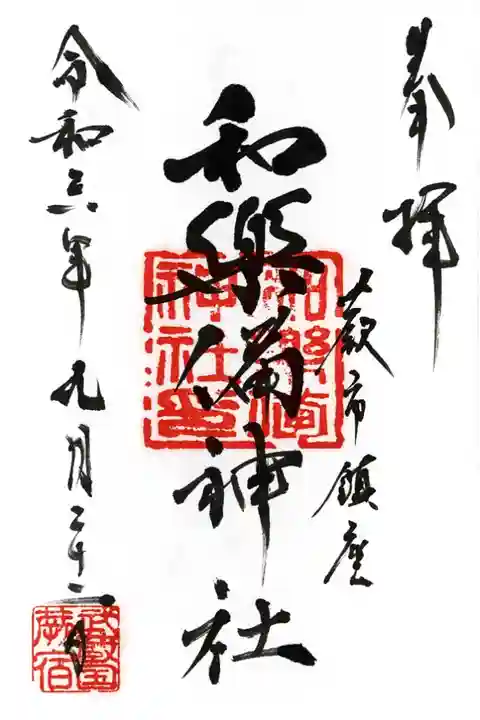 奉拝
蕨市鎮座
和樂備神社
令和六年九月二十二日
和樂備
神社印
武蔵国
蕨宿